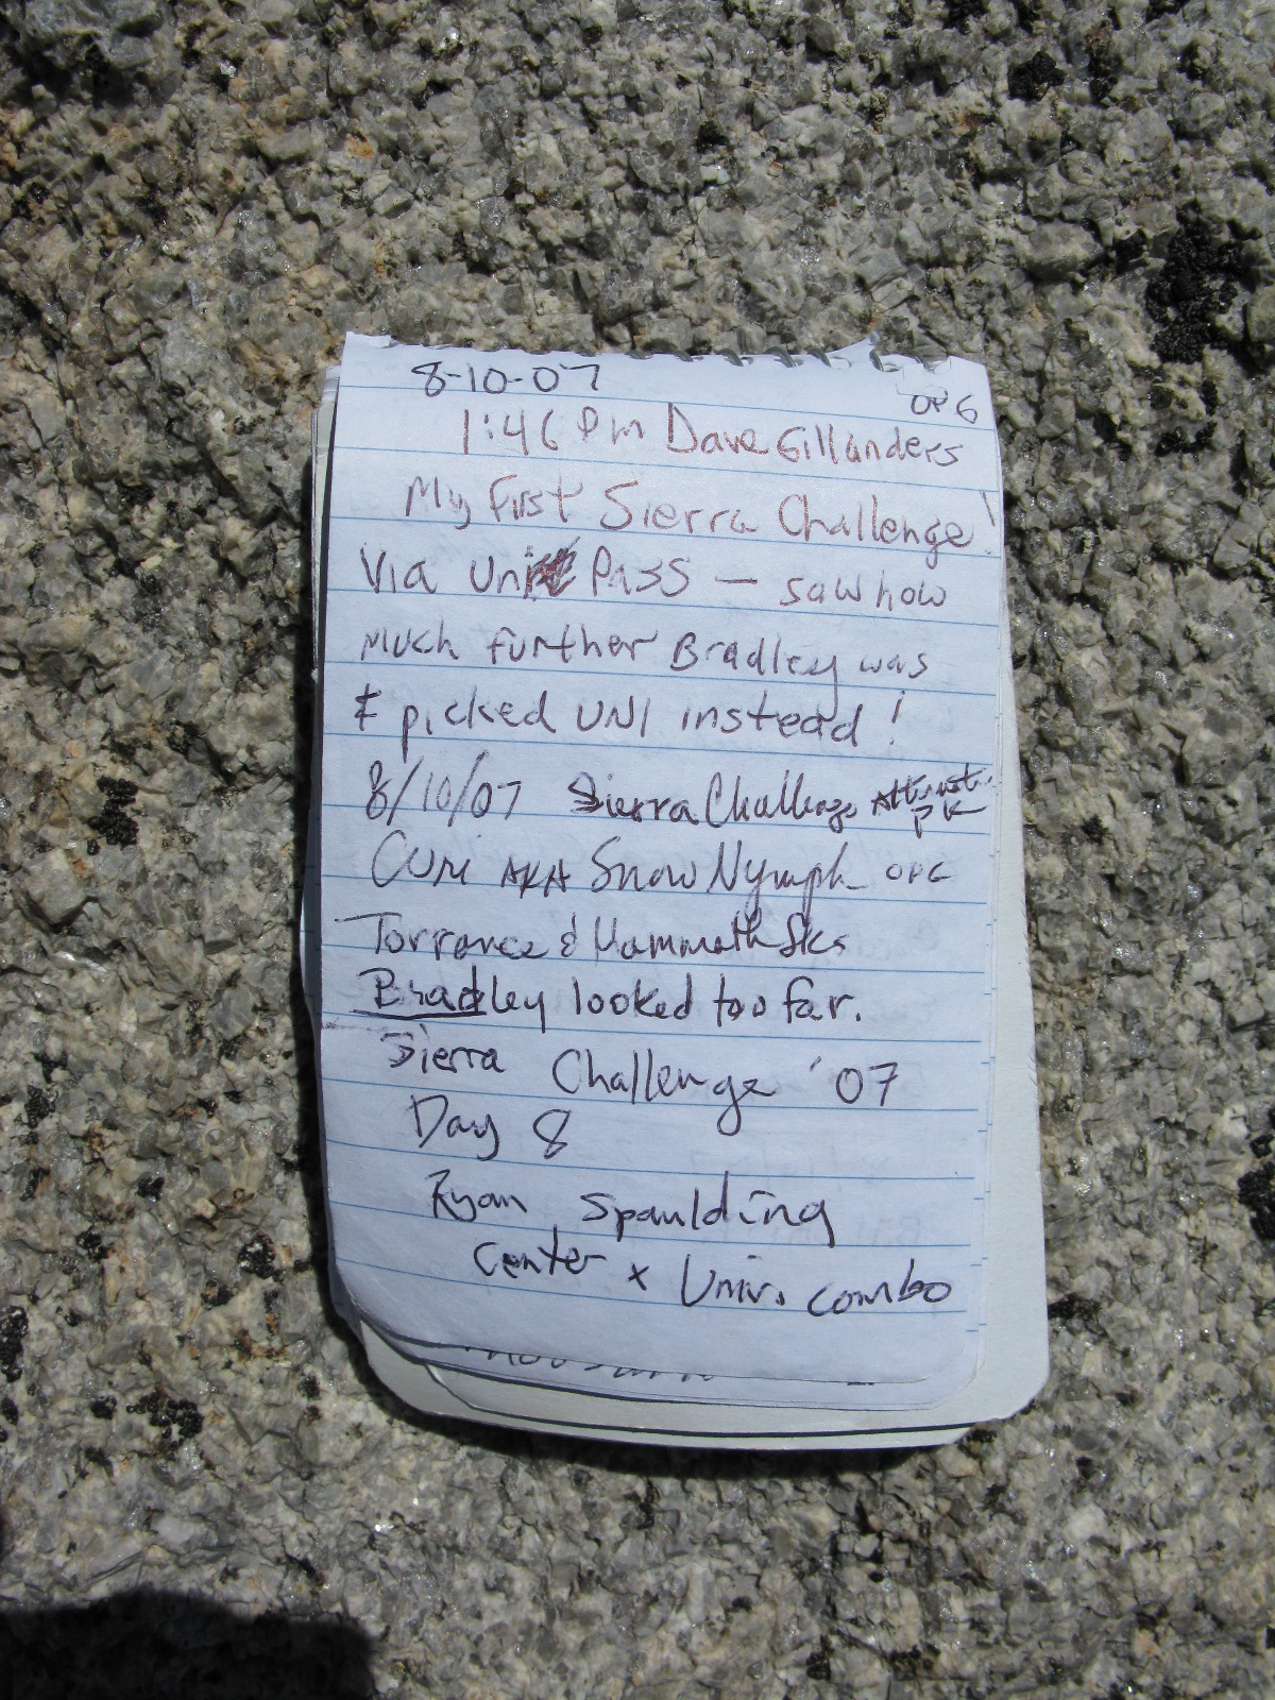 8-10-07
OPG
1:46 PM Dave Gillanders
My First Sierra Challenge!
Via Uni Pass — saw how
Much further Bradley was
& picked UNI instead!
8/10/07 Sierra Challenge Alternate
PK
AKA Snow Nymph OPG
Torrance & Mammoth Lks
Bradley looked too far.
Sierra Challenge '07
Day 8
Ryan Spaulding
Center x Univ. combo